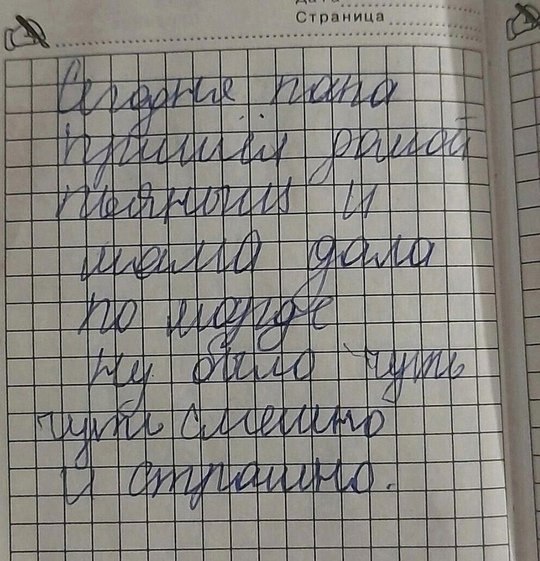 Дата
Страница
Сегодня папа
пришёл домой
пьяным и
мама дала
по морде
ну было чуть
чуть смешно
и страшно.